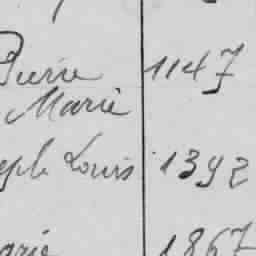 Pierre 1147
Marie
eph Louis 1392
arie 1867